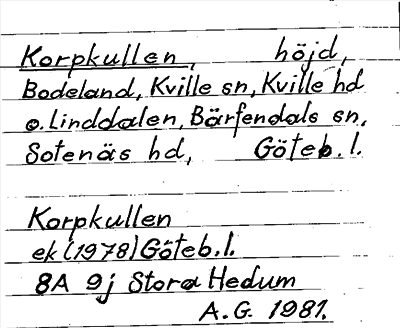 Korpkullen, höjd,
Bodeland, Kville sn, Kville hd
o. Linddalen, Bärfendals sn,
Sotenäs hd, Göteb. l.
Korpkullen
ek (1978) Göteb. l.
8A 9j Stora Hedum
A.G. 1981.